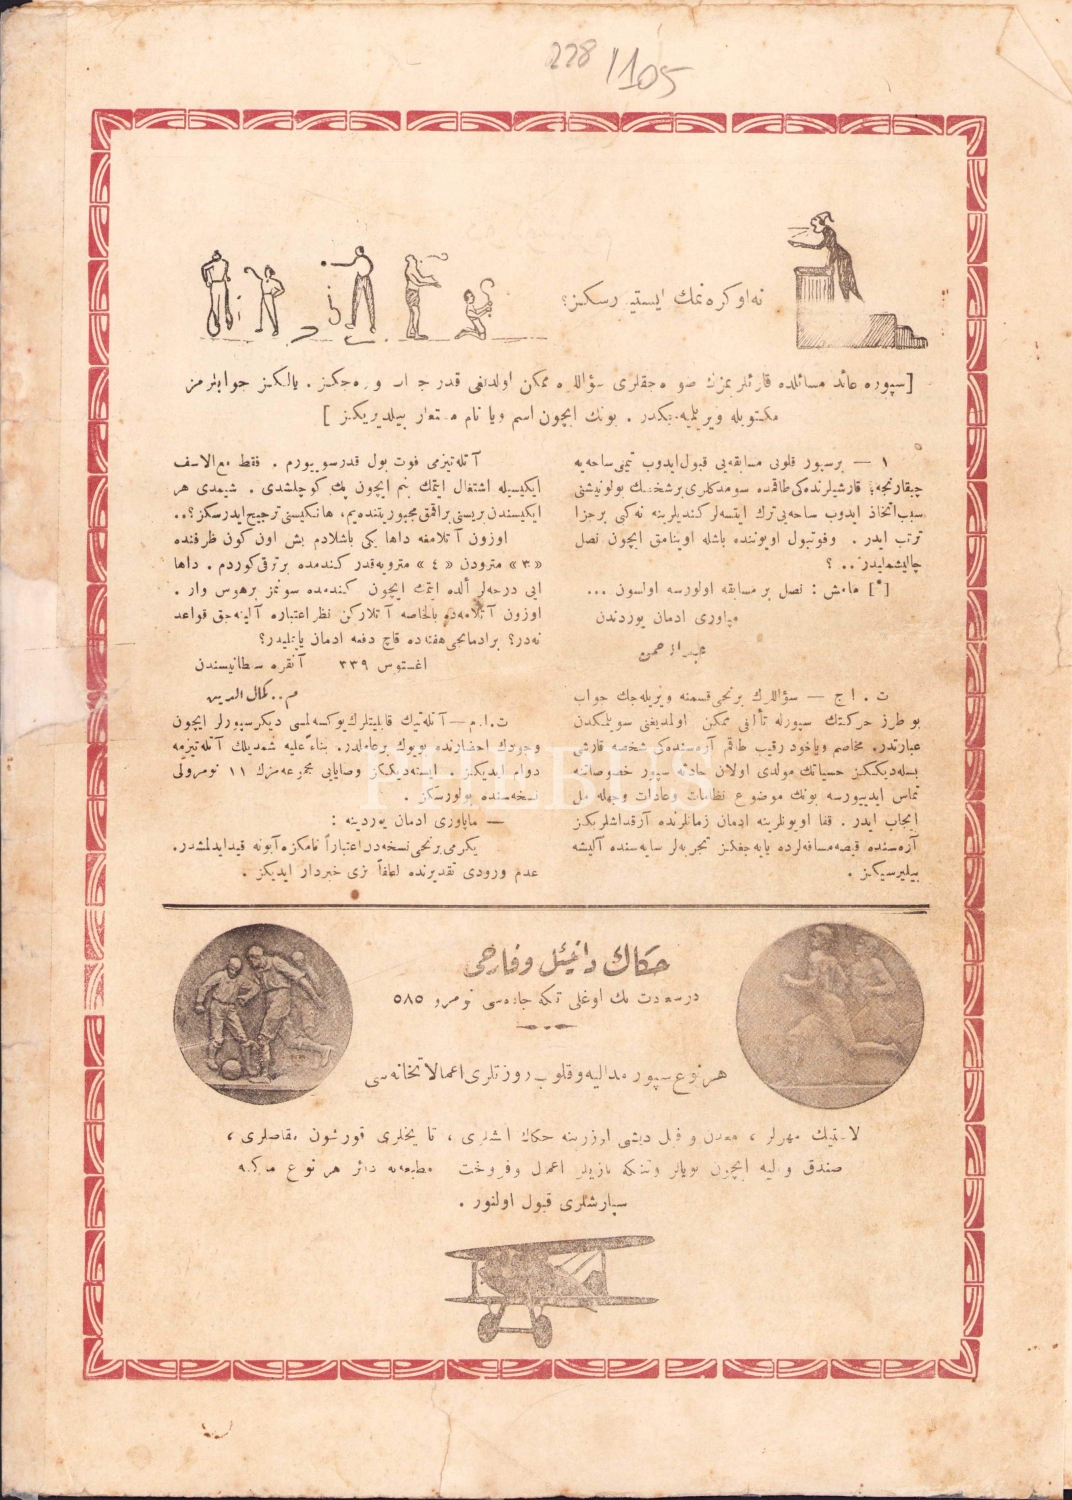 228 / 1105
نه اوكره نمك ايستيورسكز؟
[سپوره عائد مسائلده قارئلريمزك صوره جقلرى سؤاللره ممكن اولديغى قدر جواب ويره جكز . يالكز جوابلرمز
مكتوبله ويرلميه جكدر . بونك ايچون اسم ويا نام مستعار بيلديريكز ]
١ — برسپور قلوبى مسابقه يى قبول ايدوب تيمى ساحه يه
چيقارنجه، قارشيلرنده كى طاقمده سومدكلرى برشخصك بولونيشنى
سبب اتخاذ ايدوب ساحه يى ترك ايتسه لر كنديلرينه نه كى برجزا
ترتب ايدر . وفوتبول اويوننده باشله اوينامق ايچون نصل
چاليشمليدر . . ؟
[*] هامش : نصل بر مسابقه اولورسه اولسون ...
مپاورى ادمان يوردندن
عبدالرحمن
ت . ا ج — سؤاللرك برنجى قسمنه ويريله جك جواب
بو طرز حركتك سپورله تأليفى ممكن اولمديغنى سويلمكدن
عبارتدر. مخاصم وياخود رقيب طاقم آره سنده كى شخصه قارشى
بسله ديككز حسياتك مولدى اولان حادثه سپور خصوصاتنه
تماس ايدييورسه بونك موضوع نظامات وعادات وجهله حل
ايجاب ايدر . قفا اويونلرينه ادمان زمانلرنده آرقداشلريكز
آره سنده قيصه مسافه لرده ياپه جغكز تجربه لر سايه سنده آليشه
بيليرسيكز .
آتله تيزمى فوت بول قدر سوييورم . فقط مع الاسف
ايكيسيله اشتغال ايتمك بنم ايچون پك كوچلشدى . شيمدى هر
ايكيسندن بريسنى براقمق مجبوريتنده يم، هانكيسنى ترجيح ايدرسكز؟..
اوزون آتلامغه داها يكى باشلادم بش اون كون ظرفنده
«٣» مترودن «٤» مترويه قدر كندمده بر ترقى كوردم . داها
ايى درجه لر ألده ايتمك ايچون كندمده سونمز برهوس وار .
اوزون آتلامه ده بالخاصه آتلاركن نظر اعتباره آلينه جق قواعد
نه در؟ بر ادمانجى هفته ده قاچ دفعه ادمان ياپمليدر؟
اغستوس ٣٣٩ آنقره سلطانيسندن
م . . كمال الدين
ت . ا . م — آتله تيك قابليتلرك يوكسه لمسى ديكر سپورلر ايچون
وجودك احضارنده بويوك برعاملدر. بناءً عليه شمديلك آتله تيزمه
دوام ايديكز . ايسته ديككز وصايايى مجموعه مزك ١١ نومرولى
نسخه سنده بولورسكز .
— ماپاورى ادمان يوردينه :
يكرمى برنجى نسخه دن اعتباراً نامكزه آبونه قيد ايدلمشدر.
عدم ورودى تقديرنده لطفاً بزى خبردار ايديكز .
PHEBUS
حكاك دانيئل وفارحى
درسعادت بك اوغلى تكه جاده سى نومرو ٥٨٥
هر نوع سپور مداليه و قلوب روزتلرى اعمالاتخانه سى
لاستيك مهرلر ، معدن و فيل ديشى اوزرينه حكاك ايشلرى ، تاريخلرى قورشون مقاصلرى ،
صندق وباليه ايچون بويالر وتنكه يازيلر اعمال وفروخت مطبعه يه دائر هر نوع ماكنه
سپارشلرى قبول اولنور .